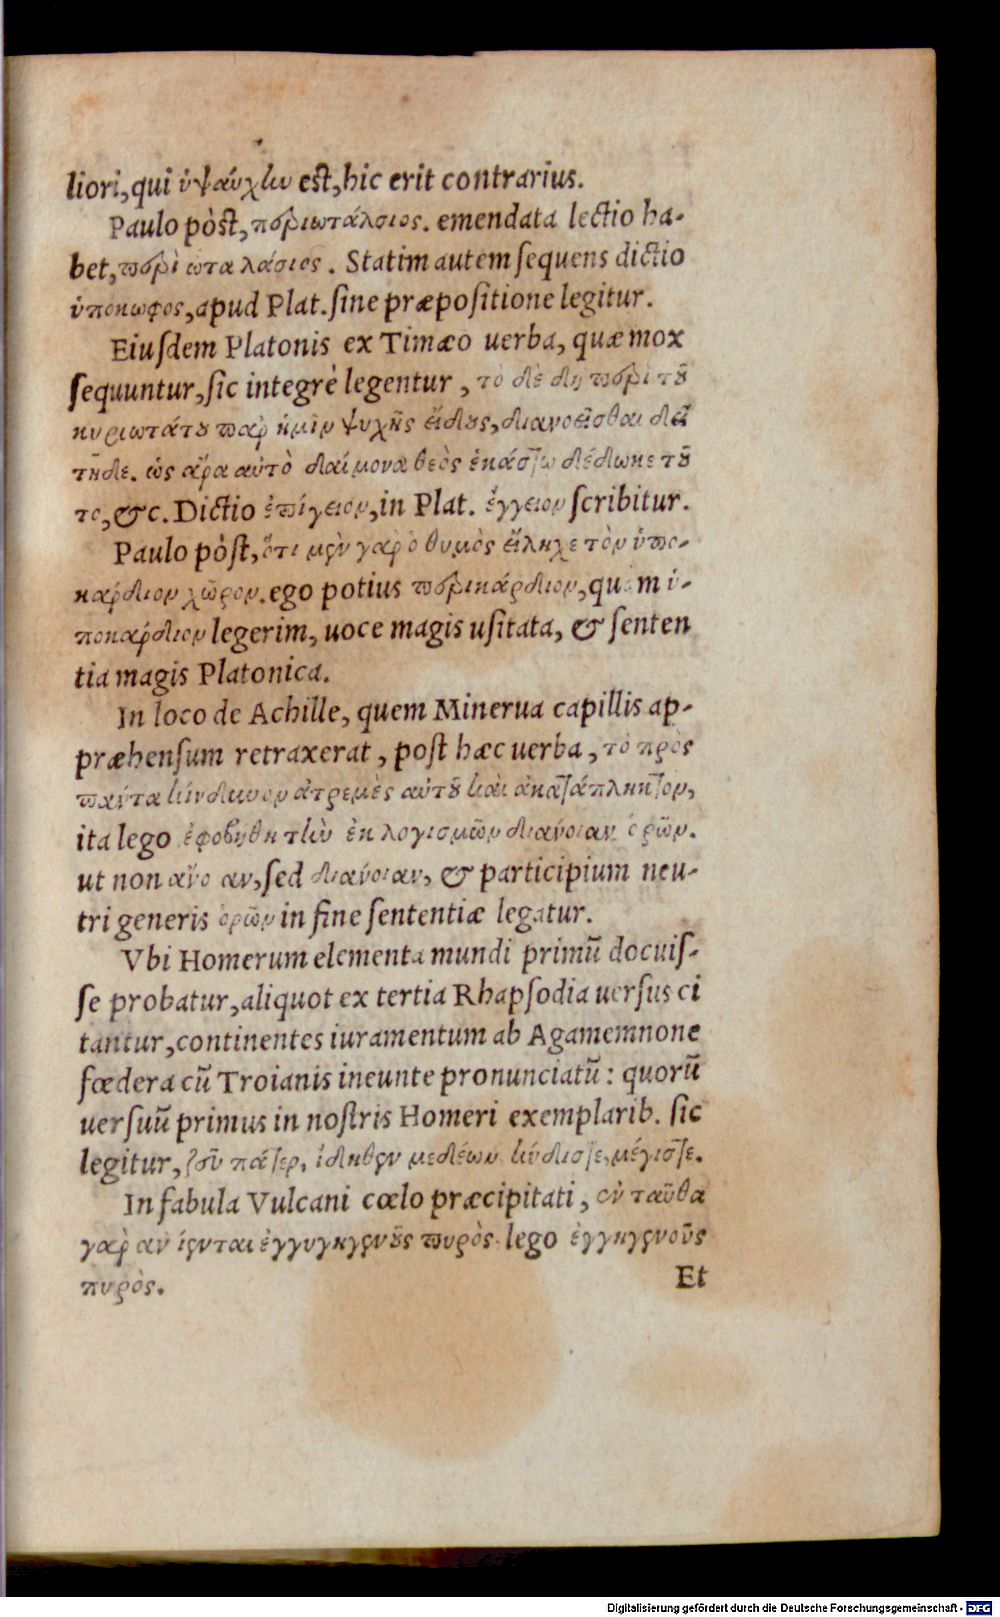 liori, qui ὑψαύχην est, hic erit contrarius.
Paulo pòst, περιωτάλσιος. emendata lectio ha-
bet, περὶ ὦτα λάσιος. Statim autem sequens dictio
ὑπόκωφος, apud Plat. sine præpositione legitur.
Eiusdem Platonis ex Timæo uerba, quæ mox
sequuntur, sic integrè legentur, τὸ δὲ δὴ περὶ τοῦ
κυριωτάτου παρ ἡμῖν ψυχῆς εἴδους, διανοεῖσθαι δεῖ
τῆδε. ὡς ἄρα αὐτὸ δαίμονα θεὸς ἑκάστῳ δέδωκε τοῦ
το, &c. Dictio ἐπίγειον, in Plat. ἔγγειον scribitur.
Paulo pòst, ὅτι μὲν γαρ ὁ θυμὸς εἴληχε τὸν ὑπο-
κάρδιον χῶρον. ego potius περικάρδιον, quàm ὑ-
ποκάρδιον legerim, uoce magis usitata, & senten
tia magis Platonica.
In loco de Achille, quem Minerua capillis ap-
præhensum retraxerat, post hæc uerba, τὸ πρὸς
πάντα κίνδυνον ἀτρεμὲς αὐτοῦ καὶ ἀκατάπληκτον,
ita lego ἐφοβήθη τὴν ἐκ λογισμῶν διάνοιαν ὁρῶν.
ut non ἄνο αν, sed διάνοιαν, & participium neu-
tri generis ὁρῶν in fine sententiæ legatur.
Vbi Homerum elementa mundi primũ docuis-
se probatur, aliquot ex tertia Rhapsodia uersus ci
tantur, continentes iuramentum ab Agamemnone
fœdera cũ Troianis ineunte pronunciatũ: quorũ
uersuũ primus in nostris Homeri exemplarib. sic
legitur, ζοῦ πάτερ, ἴδηθεν μεδέων κύδιστε, μέγιστε.
In fabula Vulcani cœlo præcipitati, ἐν ταῦθα
γαρ ἀν ίενται ἐγγυγηγενοῦς πυρὸς. lego ἐγγηγενοῦς
πυρὸς.
Et
Digitalisierung gefördert durch die Deutsche Forschungsgemeinschaft - DFG